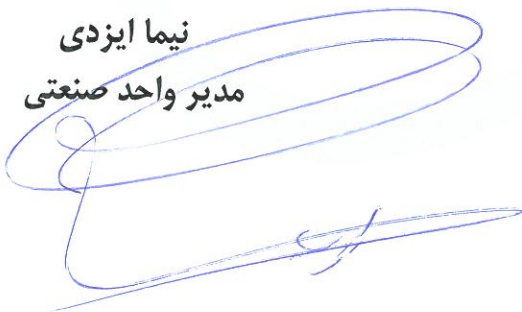 نیما ایزدی
مدیر واحد صنعتی